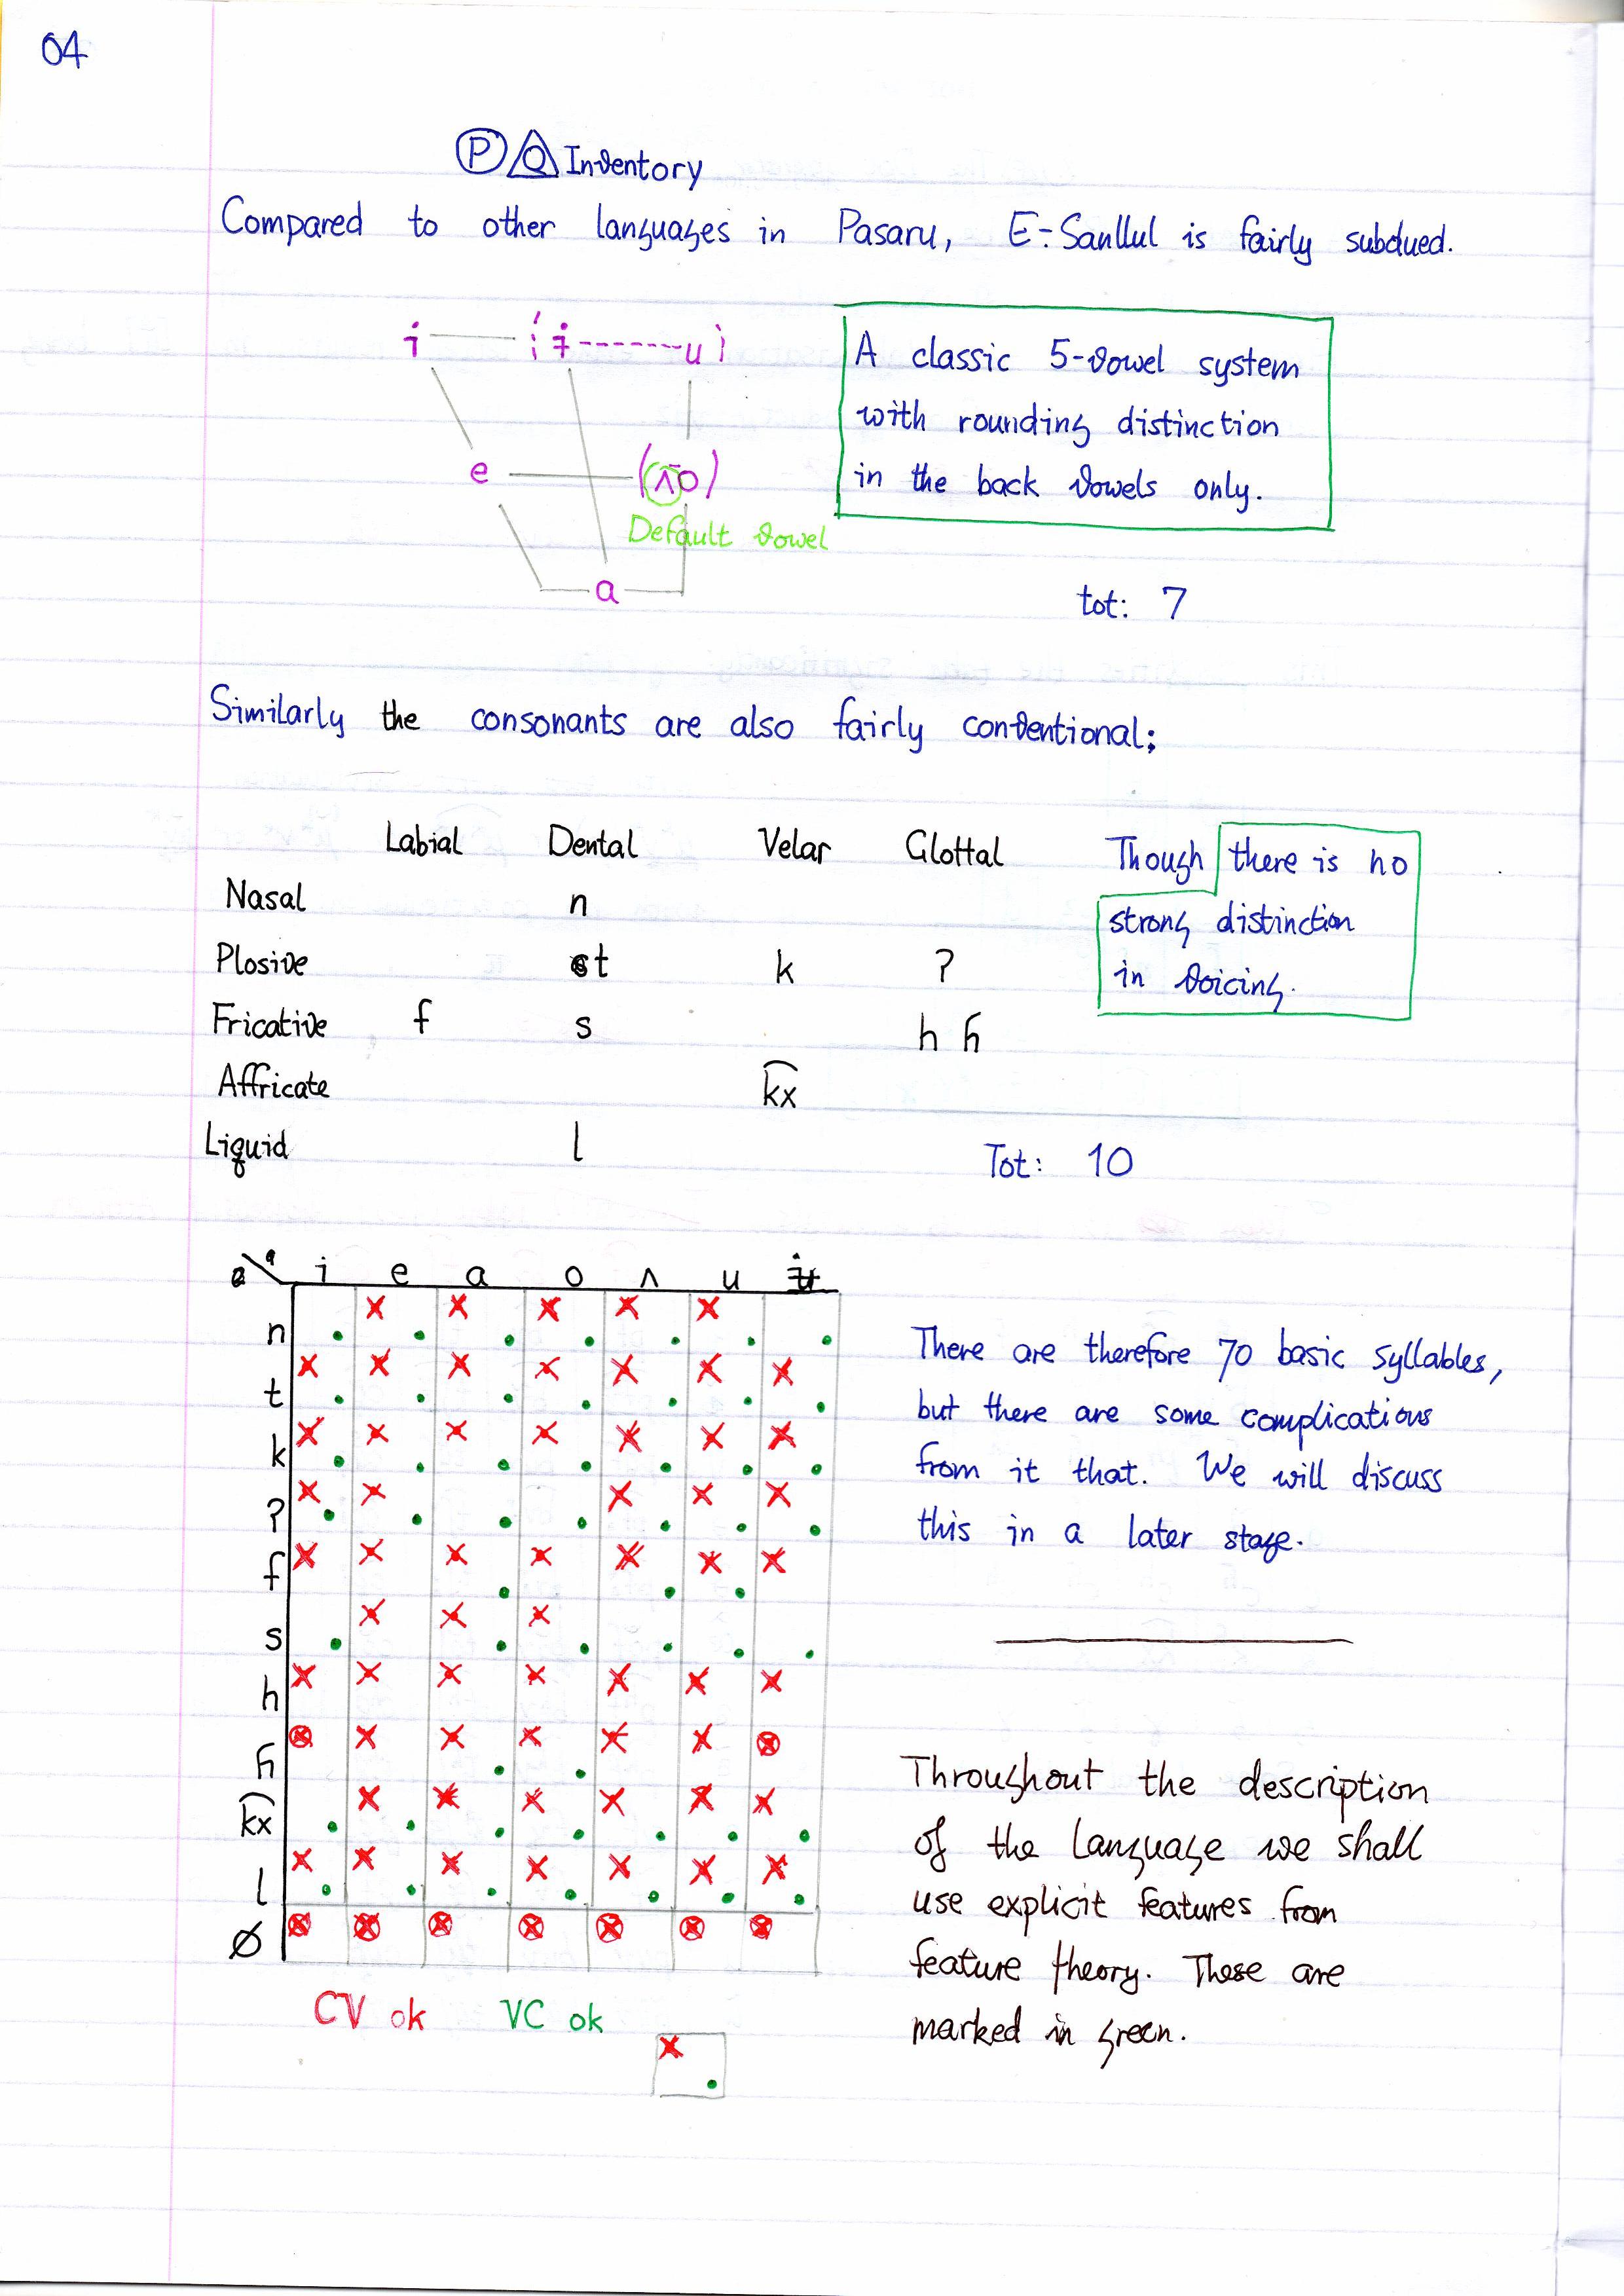 04
P Q Inventory
Compared to other languages in Pasaru, E-Sanllul is fairly subdued.
i (ɨ u)
e (ʌ o)
Default vowel
a
A classic 5-vowel system
with rounding distinction
in the back vowels only.
tot: 7
Similarly the consonants are also fairly conventional:
Labial Dental Velar Glottal
Nasal n
Plosive t k ʔ
Fricative f s h ɦ
Affricate k͡x
Liquid l
Though there is no
strong distinction
in voicing.
Tot: 10
i e a o ʌ u ɨ
n
t
k
ʔ
f
s
h
ɦ
k͡x
l
Ø
CV ok VC ok
There are therefore 70 basic syllables,
but there are some complications
from it that. We will discuss
this in a later stage.
Throughout the description
of the language we shall
use explicit features from
feature theory. These are
marked in green.